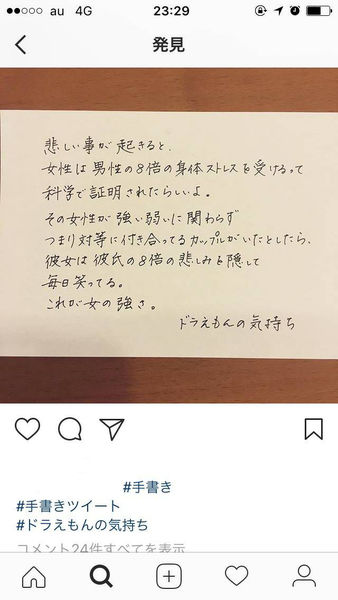 au 4G 23:29
発見
悲しい事が起きると、
女性は男性の8倍の身体ストレスを受けるって
科学で証明されたらしいよ。
その女性が強い弱いに関わらず
つまり対等に付き合ってるカップルがいたとしたら、
彼女は彼氏の8倍の悲しみを隠して
毎日笑ってる。
これが女の強さ。
ドラえもんの気持ち
#手書き
#手書きツイート
#ドラえもんの気持ち
コメント24件すべてを表示